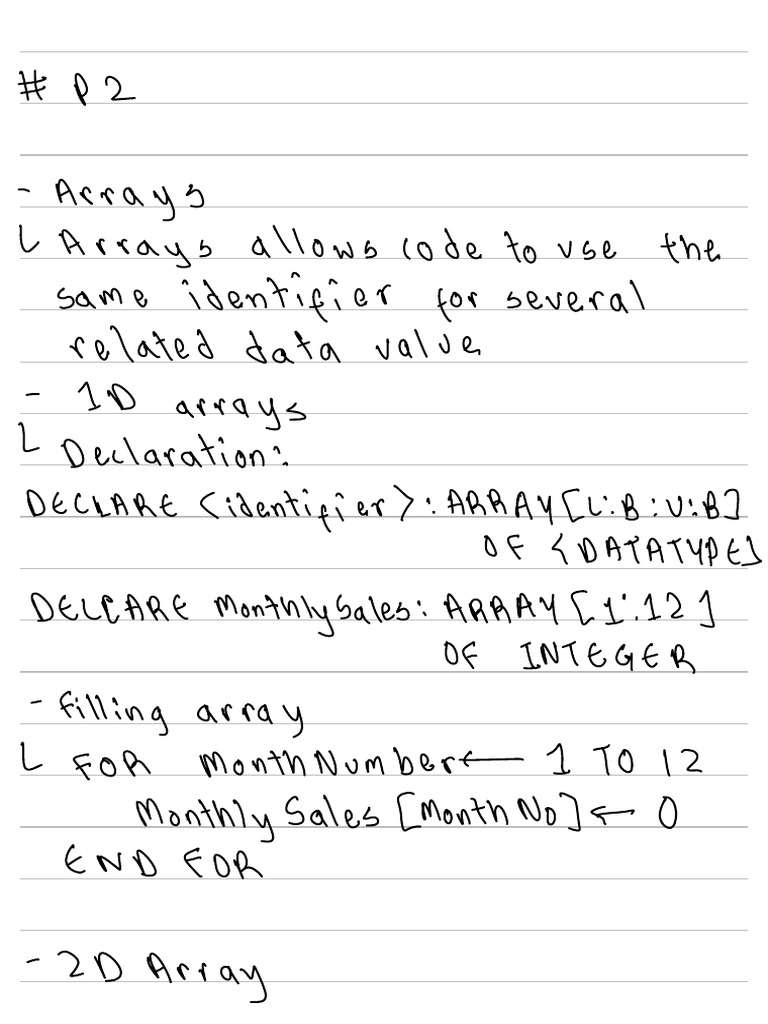 # P2
- Arrays
L Arrays allows code to use the
same identifier for several
related data value
- 1D arrays
L Declaration:
DECLARE <identifier>: ARRAY[L:B:U:B]
OF <DATATYPE>
DELCARE MonthlySales: ARRAY [1:12]
OF INTEGER
- Filling array
L FOR MonthNumber ← 1 TO 12
MonthlySales [MonthNo] ← 0
END FOR
- 2D Array